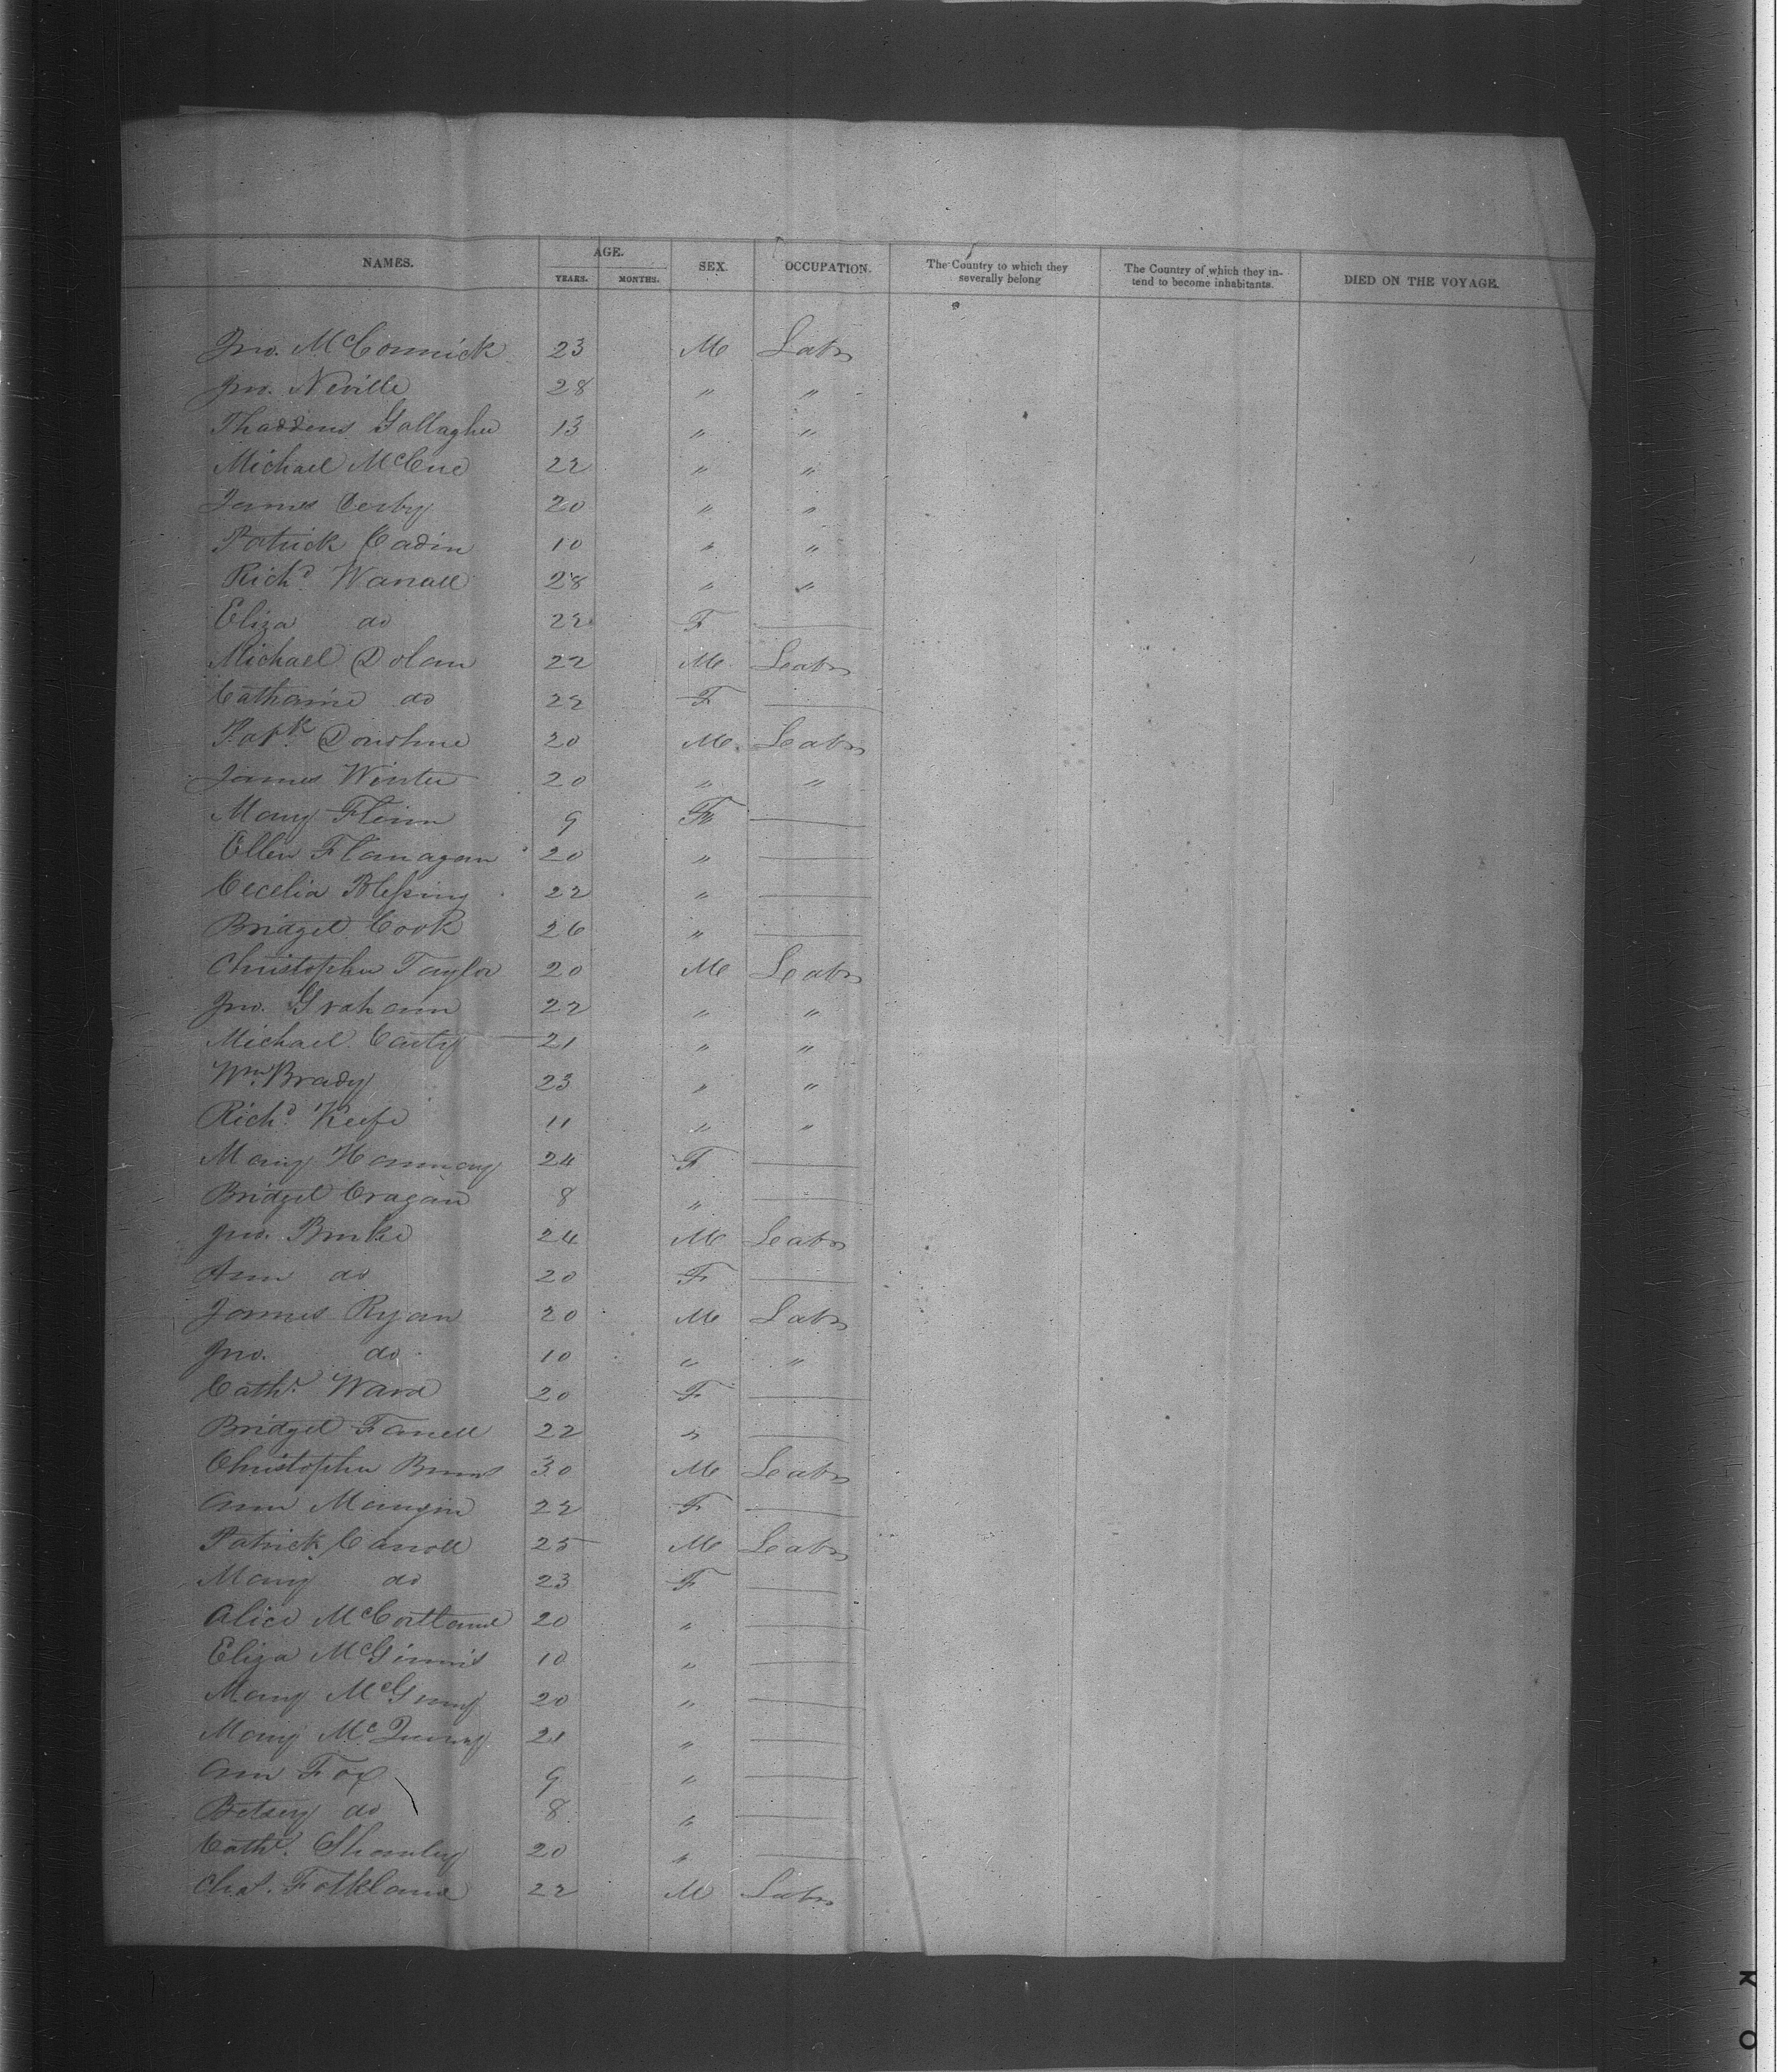 NAMES. AGE. YEARS. MONTHS. SEX. OCCUPATION. The Country to which they severally belong The Country of which they intend to become inhabitants. DIED ON THE VOYAGE.
Jno. McCormick 23 M Labr
Jno. Neville 28 " "
Thaddeus Gallagher 13 " "
Michael McCue 22 " "
James Derby 20 " "
Patrick Cadin 10 " "
Richd. Wanall 28 " "
Eliza do 22 F —
Michael Dolan 22 M Labr
Catharine do 22 F —
Patk. Donohue 20 M. Labr
James Winter 20 " "
Mary Flinn 9 F —
Ellen Flanagan 20 " —
Cecelia Blessing 22 " —
Bridget Cook 26 " —
Christopher Taylor 20 M Labr
Jno. Graham 22 " "
Michael Carty 21 " "
Wm. Brady 23 " "
Richd. Keefe 11 " "
Mary Hannay 24 F —
Bridget Cragan 8 " —
Jno. Burke 24 M Labr
Ann do 20 F —
James Ryan 20 M Labr
Jno. do 10 " "
Cathe. Ward 20 F —
Bridget Farrell 22 " —
Christopher Burns 30 M Labr
Ann Mangin 22 F —
Patrick Carroll 25 M Labr
Mary do 23 F —
Alice McCortland 20 " —
Eliza McGinnis 10 " —
Mary McGinny 20 " —
Mary 21 " —
Ann Fox 9 " —
Betsey do 8 " —
Cathe. 20 " —
Chas. Falkland 22 M Labr
K O